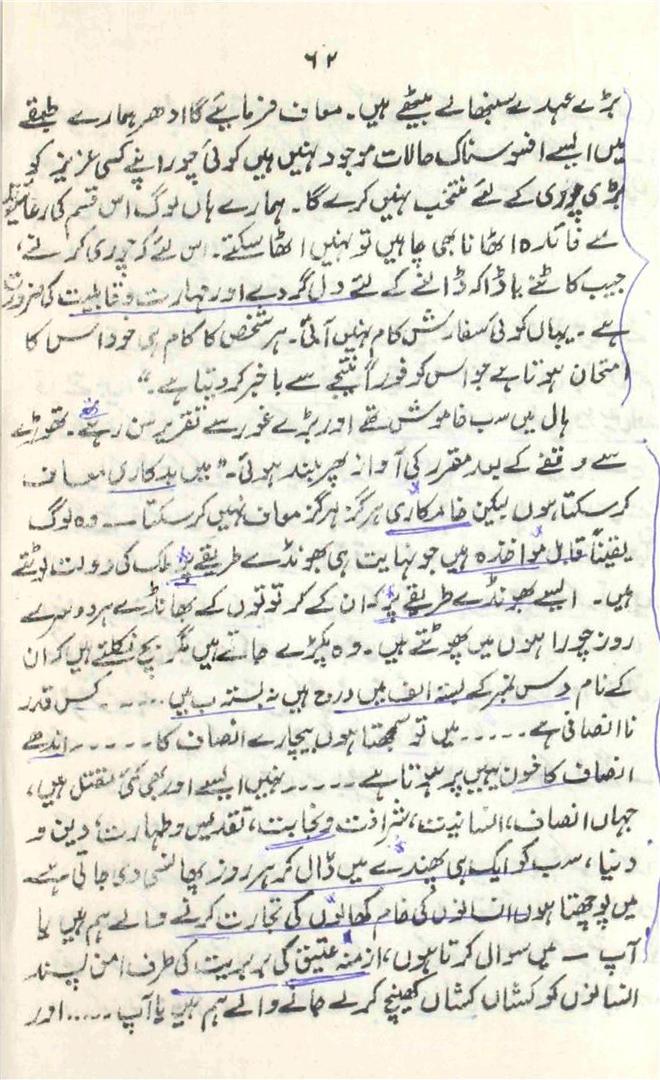 ۶۲
بڑے عہدے سنبھالے بیٹھے ہیں۔ معاف فرمایئے گا ادھر ہمارے طبقے
میں ایسے افسوسناک حالات موجود نہیں ہیں کوئی چور اپنے کسی عزیز کو
بڑی چوری کے لئے منتخب نہیں کرے گا۔ ہمارے ہاں لوگ اس قسم کی رعایتوں
سے فائدہ اٹھانا بھی چاہیں تو نہیں اٹھا سکتے۔ اس لئے کہ چوری کرنے،
جیب کاٹنے یا ڈاکہ ڈالنے کے لئے دل گردے اور مہارت و قابلیت کی ضرورت
ہے۔ یہاں کوئی سفارش کام نہیں آتی۔ ہر شخص کا کام ہی خود اس کا
امتحان ہوتا ہے جو اس کو فوراً نتیجے سے باخبر کر دیتا ہے۔“
ہال میں سب خاموش تھے اور بڑے غور سے تقریر سن رہے تھے۔ تھوڑے
سے وقفے کے بعد مقرر کی آواز پھر بلند ہوئی۔ ”میں بدکاری معاف
کر سکتا ہوں لیکن خامکاری ہرگز ہرگز معاف نہیں کر سکتا — وہ لوگ
یقیناً قابل مواخذہ ہیں جو نہایت ہی بھونڈے طریقے پر ملک کی دولت لوٹتے
ہیں۔ ایسے بھونڈے طریقے پر کہ ان کے کرتوتوں کے بھانڈے ہر دوسرے
روز چوراہوں میں پھوٹتے ہیں۔ وہ پکڑے جاتے ہیں مگر بچ نکلتے ہیں کہ ان
کے نام دس نمبر کے بستہ الف میں درج ہیں نہ بستہ ب میں ..... کس قدر
ناانصافی ہے ..... میں تو سمجھتا ہوں بیچارے انصاف کا ..... اندھے
انصاف کا خون یہیں پر ہوتا ہے ..... نہیں ایسے اور بھی کئی مقتل ہیں،
جہاں انصاف، انسانیت، شرافت و نجابت، تقدیس و طہارت، دین و
دنیا، سب کو ایک ہی پھندے میں ڈال کر ہر روز پھانسی دی جاتی ہے
میں پوچھتا ہوں انسانوں کی خام کھالوں کی تجارت کرنے والے ہم ہیں یا
آپ — میں سوال کرتا ہوں، ازمنہ عتیق کی بربریت کی طرف امن پسند
انسانوں کو کشاں کشاں کھینچ کر لے جانے والے ہم ہیں یا آپ ..... اور